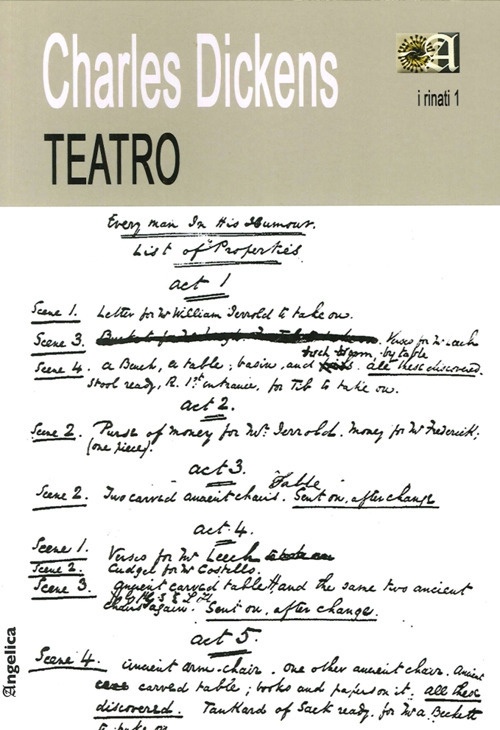 Charles Dickens
TEATRO
A
i rinati 1
Every man In His Humour.
List of Properties
act 1
Scene 1. Letter for Mr William Jerrold to take on.
Scene 3. Verses for Mr Leech
by table
Scene 4. a Bench, a table; basin, and all these discovered.
stool ready, R. 1st entrance, for Tib to take on.
act 2.
Scene 2. Purse of money for Mr. Jerrold. Money for Mr Frederick;
(one piece).
act 3.
Table
Scene 2. Two carved ancient chairs. Sent on, after change
act 4.
Scene 1. Verses for Mr Leech
Scene 2. Cudgel for Mr Costello.
Scene 3. Ancient carved table and the same two ancient
chairs again. Sent on, after change.
act 5.
Scene 4. Ancient arm-chair. One other ancient chair. Ancient
carved table; books and papers on it; all these
discovered. Tankard of Sack ready for Mr a Beckett
to take on
Angelica